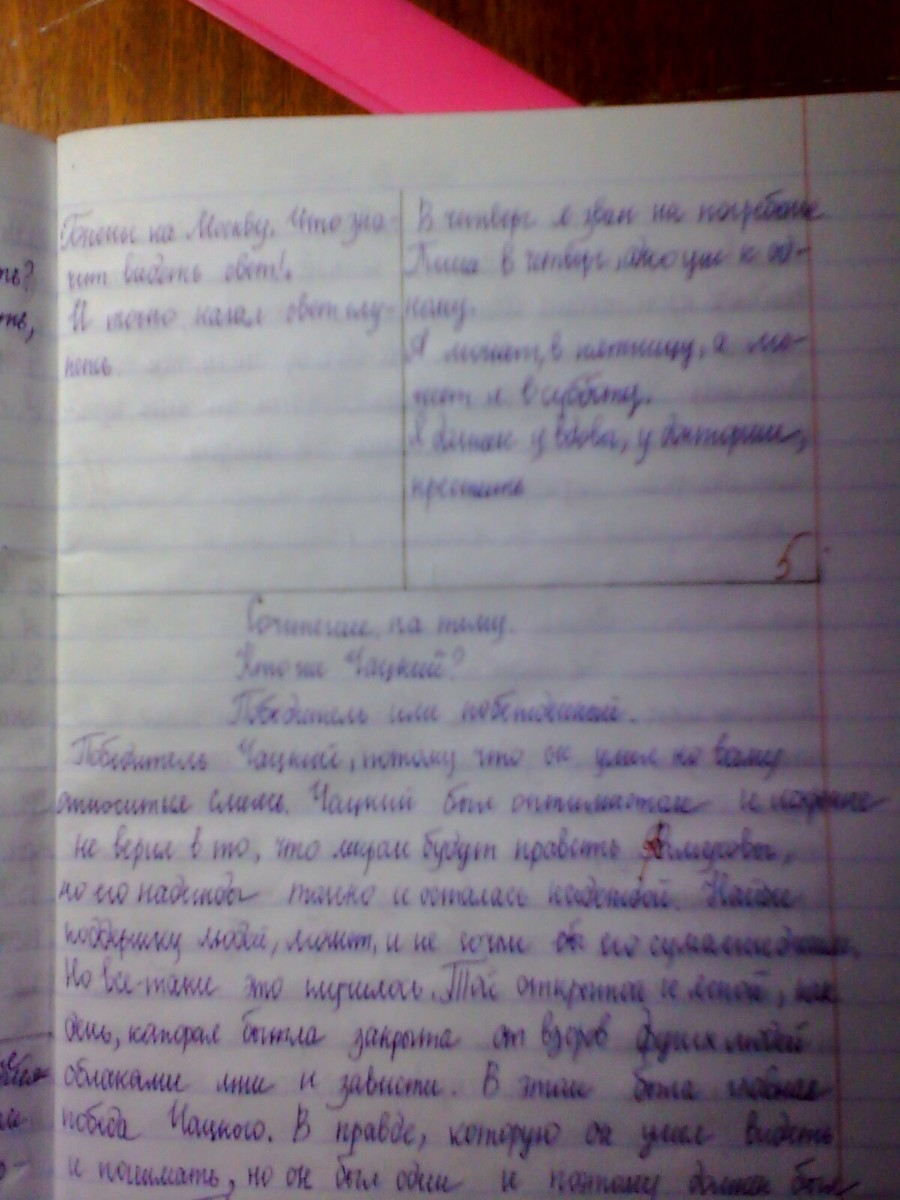 Гонены на Москву. Что зна-
чит видеть свет!
И точно начал свет глу-
петь
В четверг я зван на погребенье
Пиши в четверг, одно уж к од-
ному.
А может, в пятницу, а мо-
жет и в субботу.
Я должен у вдовы, у докторши,
крестить
5
ть?
ть,
Сочинение на тему.
Кто же Чацкий?
Победитель или побежденный.
Победитель Чацкий, потому что он умел ко всему
относиться Чацкий был оптимистом и искренне
не верил в то, что миром будут править Фамусовы,
но его надежда только и осталась надеждой. Найди
поддержку людей, может, и не сочли бы его сумасшедшим.
Но все-таки это случилось. Той открытой и ясной, как
день, которая была закрыта от взоров других людей
облаками лжи и зависти. В этом была главная
победа Чацкого. В правде, которую он умел видеть
и понимать, но он был один и поэтому должен был